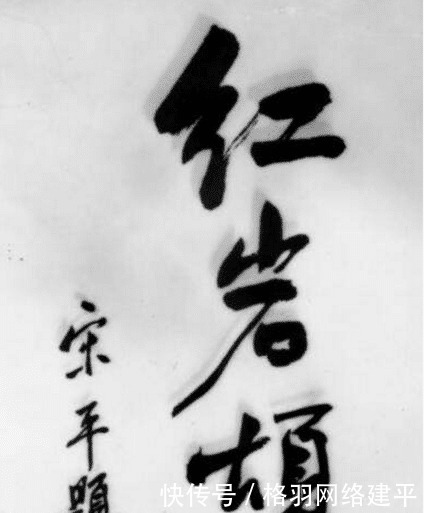 红岩
宋平題
快传号/格羽网络建平